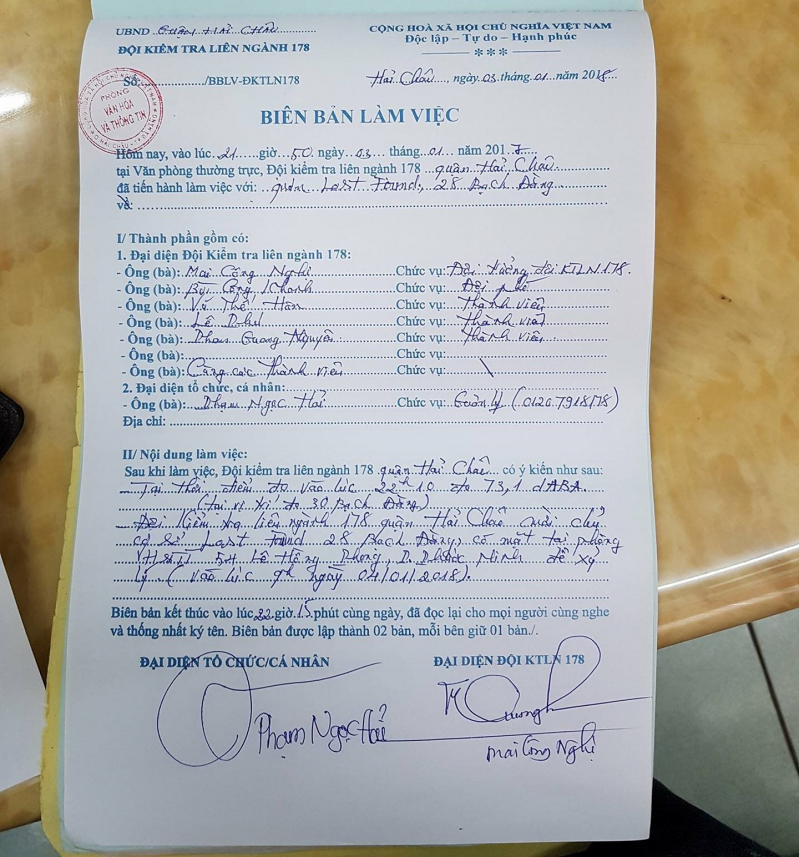 UBND Quận Hải Châu
ĐỘI KIỂM TRA LIÊN NGÀNH 178
CỘNG HOÀ XÃ HỘI CHỦ NGHĨA VIỆT NAM
Độc lập – Tự do – Hạnh phúc
***
Số:............/BBLV-ĐKTLN178
Hải Châu, ngày 03 tháng 01 năm 2018
PHÒNG
VĂN HÓA
VÀ THÔNG TIN
BIÊN BẢN LÀM VIỆC
Hôm nay, vào lúc 21 giờ 50 ngày 03 tháng 01 năm 2017
tại Văn phòng thường trực, Đội kiểm tra liên ngành 178 quận Hải Châu
đã tiến hành làm việc với: quán Last Found, 28 Bạch Đằng
về:
I/ Thành phần gồm có:
1. Đại diện Đội Kiểm tra liên ngành 178:
- Ông (bà): Mai Công Nghị Chức vụ: Đội trưởng đội KTLN 178.
- Ông (bà): Bùi Công Khanh Chức vụ: Đội phó
- Ông (bà): Vũ Thế Hân Chức vụ: Thành viên
- Ông (bà): Lê Chức vụ: Thành viên
- Ông (bà): Phan Quang Nguyên Chức vụ: Thành viên
- Ông (bà): Chức vụ:
- Ông (bà): Cùng các thành viên Chức vụ: \
2. Đại diện tổ chức, cá nhân:
- Ông (bà): Phạm Ngọc Hải Chức vụ: Quản lý (0120.7918178)
Địa chỉ:
II/ Nội dung làm việc:
Sau khi làm việc, Đội kiểm tra liên ngành 178 quận Hải Châu có ý kiến như sau:
Tại thời điểm đo vào lúc 22h10 đo 73,1 dABA.
(tại vị trí đo 30 Bạch Đằng)
Đội Kiểm tra liên ngành 178 quận Hải Châu mời chủ
cơ sở Last Found 28 Bạch Đằng, có mặt tại phòng
VHTT 54 Lê Hồng Phong, P. Phước Ninh để xử
lý (vào lúc 9h ngày 04/01/2018).
Biên bản kết thúc vào lúc 22 giờ 15 phút cùng ngày, đã đọc lại cho mọi người cùng nghe
và thống nhất ký tên. Biên bản được lập thành 02 bản, mỗi bên giữ 01 bản./.
ĐẠI DIỆN TỔ CHỨC/CÁ NHÂN
ĐẠI DIỆN ĐỘI KTLN 178
Phạm Ngọc Hải
Mai Công Nghị